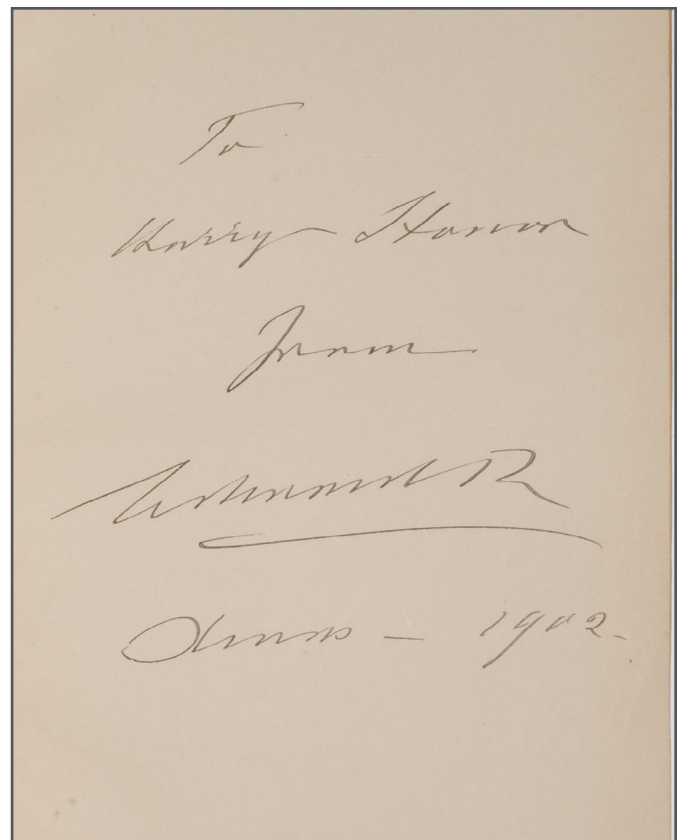 To
Harry Honor
from
Edward R
Xmas — 1902.